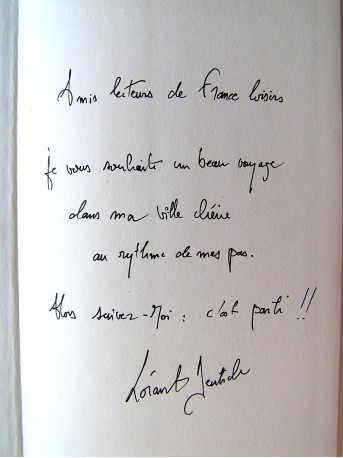 Amis lecteurs de France loisirs
je vous souhaite un beau voyage
dans ma ville chérie
au rythme de mes pas.
Alors suivez-moi : c'est parti !!
Lorànt Deutsch